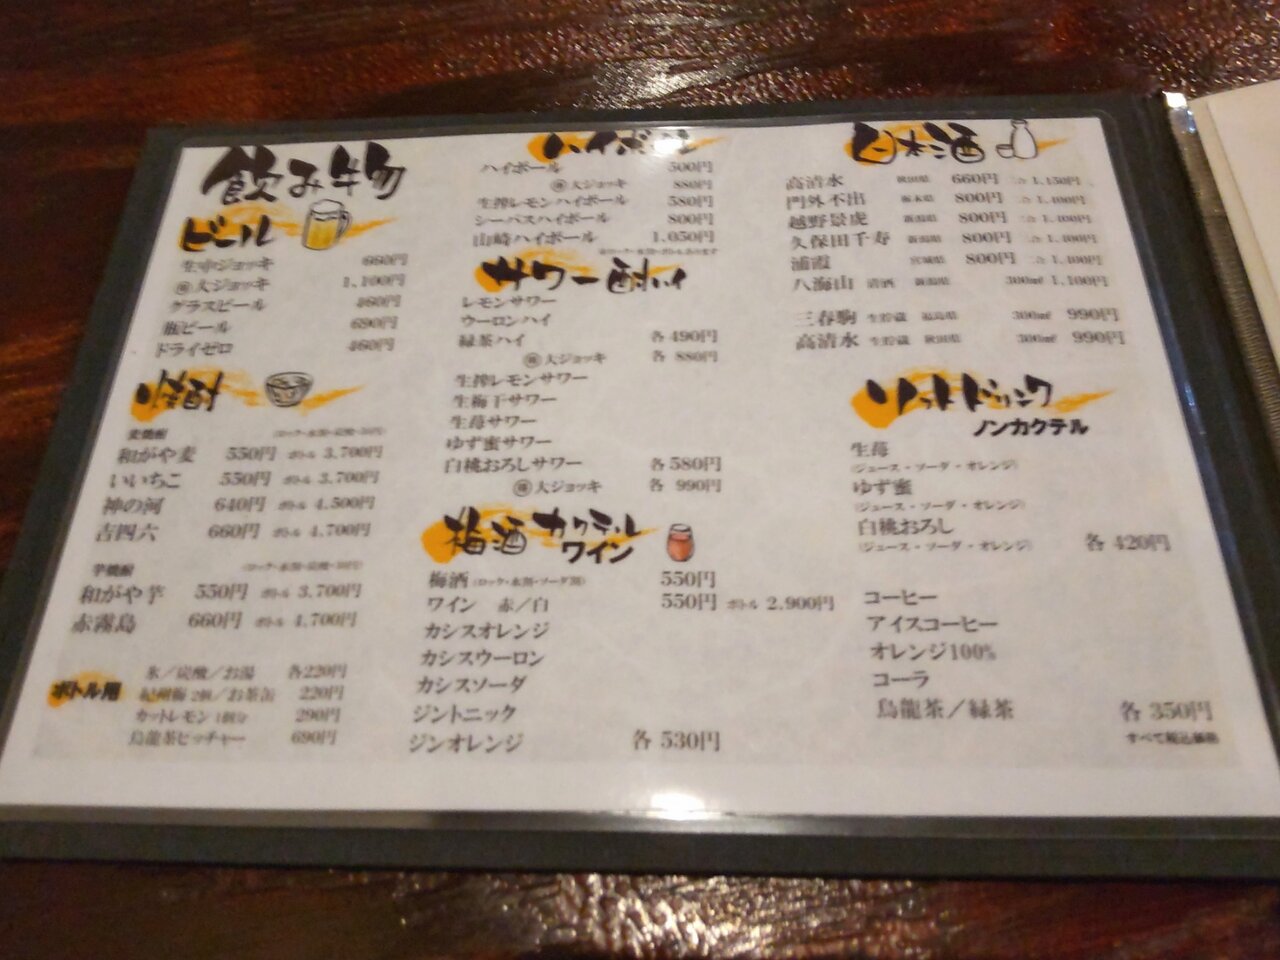 飲み物
ビール
生中ジョッキ 660円
大ジョッキ 1,100円
グラスビール 460円
瓶ビール 690円
ドライゼロ 460円
焼酎
麦焼酎
和がや麦 550円 ボトル 3,700円
いいちこ 550円 ボトル 3,700円
神の河 640円 ボトル 4,500円
吉四六 660円 ボトル 4,700円
芋焼酎
和がや芋 550円 ボトル 3,700円
赤霧島 660円 ボトル 4,700円
ボトル用
氷／炭酸／お湯 各220円
紀州梅 2個／お茶缶 220円
カットレモン 1個分 290円
烏龍茶ピッチャー 690円
ハイボール
ハイボール 500円
大ジョッキ 880円
生搾レモンハイボール 580円
シーバスハイボール 800円
山崎ハイボール 1,050円
サワー 酎ハイ
レモンサワー
ウーロンハイ
緑茶ハイ 各490円
大ジョッキ 各 880円
生搾レモンサワー
生梅干サワー
生苺サワー
ゆず蜜サワー
白桃おろしサワー 各580円
大ジョッキ 各 990円
梅酒 カクテル
ワイン
梅酒(ロック・水割・ソーダ割) 550円
ワイン 赤／白 550円 ボトル 2,900円
カシスオレンジ
カシスウーロン
カシスソーダ
ジントニック
ジンオレンジ 各 530円
日本酒
高清水 秋田県 660円 二合 1,150円
門外不出 栃木県 800円 二合 1,400円
越野景虎 新潟県 800円 二合 1,400円
久保田千寿 新潟県 800円 二合 1,400円
浦霞 宮城県 800円 二合 1,400円
八海山 清酒 新潟県 300㎖ 1,100円
三春駒 生貯蔵 福島県 300㎖ 990円
高清水 生貯蔵 秋田県 300㎖ 990円
ソフトドリンク
ノンカクテル
生苺
(ジュース・ソーダ・オレンジ)
ゆず蜜
(ジュース・ソーダ・オレンジ)
白桃おろし
(ジュース・ソーダ・オレンジ) 各 420円
コーヒー
アイスコーヒー
オレンジ100%
コーラ
烏龍茶／緑茶 各 350円
すべて税込価格